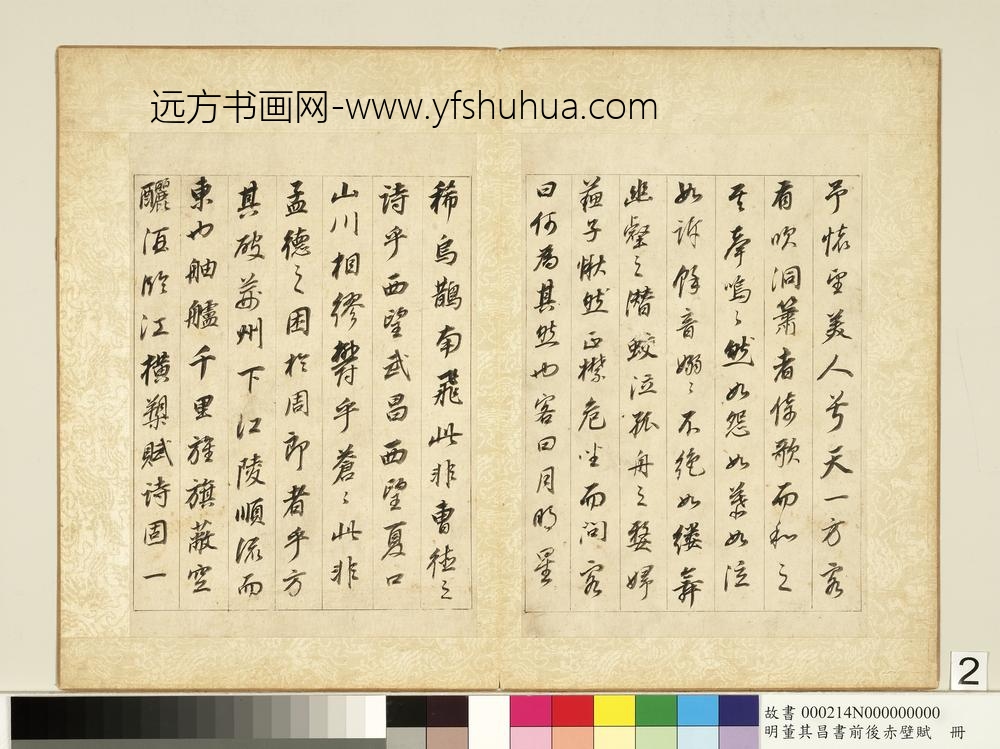 远方书画网-www.yfshuhua.com
予懷望美人兮天一方客
有吹洞簫者倚歌而和之
其聲嗚〻然如怨如慕如泣
如訴餘音嫋〻不絕如縷舞
幽壑之潛蛟泣孤舟之嫠婦
蘇子愀然正襟危坐而問客
曰何為其然也客曰月明星
稀烏鵲南飛此非曹德之
詩乎西望武昌西望夏口
山川相繆鬱乎蒼〻此非
孟德之困於周郎者乎方
其破荊州下江陵順流而
東也舳艫千里旌旗蔽空
釃酒臨江橫槊賦詩固一
2
故書 000214N000000000
明董其昌書前後赤壁賦 冊